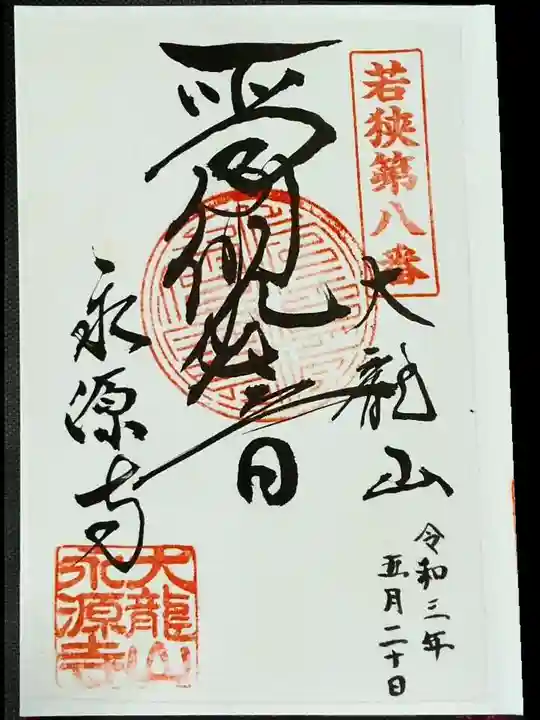 若狭第八番
大龍山
令和三年
五月二十日
観世音
永源寺
大龍山
永源寺